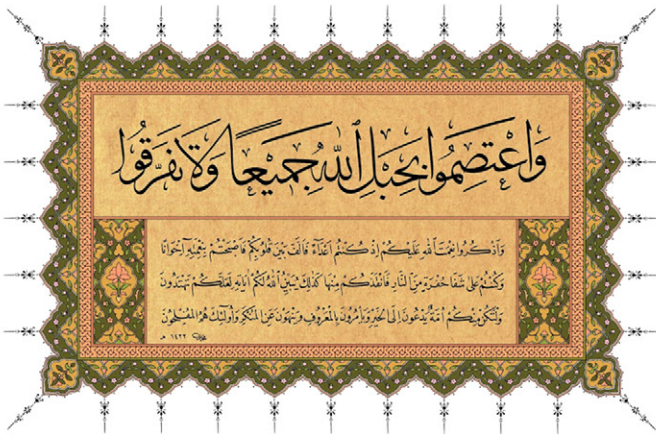 وَاعْتَصِمُوا بِحَبْلِ اللّٰهِ جَمِيْعاً وَلَا تَفَرَّقُوا
وَاذْكُرُوا نِعْمَتَ اللّٰهِ عَلَيْكُمْ اِذْ كُنْتُمْ اَعْدَآءً فَاَلَّفَ بَيْنَ قُلُوبِكُمْ فَاَصْبَحْتُمْ بِنِعْمَتِهِ اِخْوَانًا
وَكُنْتُمْ عَلٰى شَفَا حُفْرَةٍ مِنَ النَّارِ فَاَنْقَذَكُمْ مِنْهَا كَذٰلِكَ يُبَيِّنُ اللّٰهُ لَكُمْ اٰيَاتِهِ لَعَلَّكُمْ تَهْتَدُونَ
وَلْتَكُنْ مِنْكُمْ اُمَّةٌ يَدْعُونَ اِلَى الْخَيْرِ وَيَأْمُرُونَ بِالْمَعْرُوفِ وَيَنْهَوْنَ عَنِ الْمُنْكَرِ وَاُولٰئِكَ هُمُ الْمُفْلِحُونَ
١٤٢٢ هـ